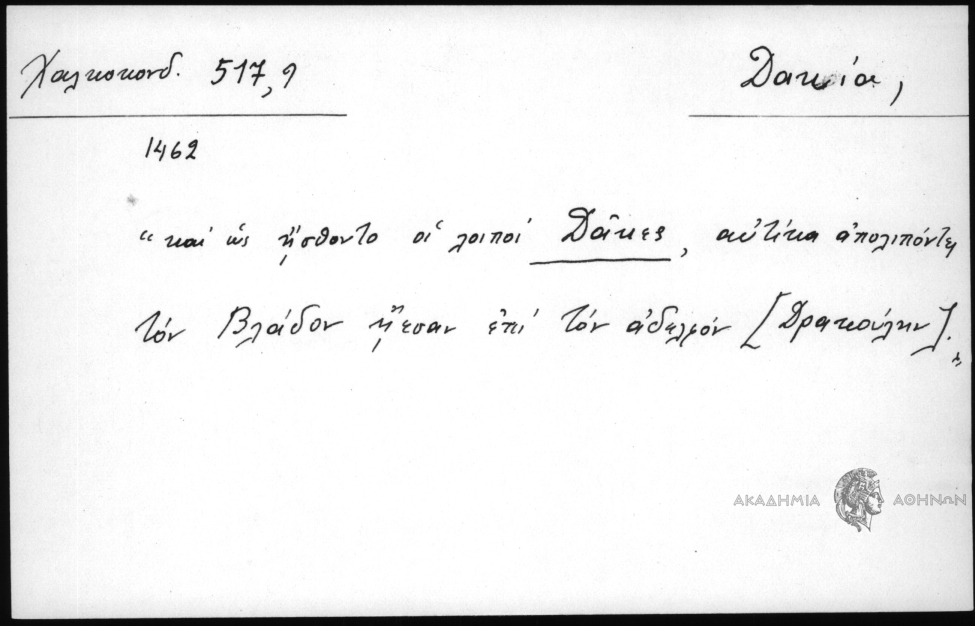 Χαλκοκονδ. 517,9
Δακία,
1462
"καί ὡς ᾔσθοντο οἱ λοιποί Δᾶκες, αὐτίκα ἀπολιπόντες
τόν Βλάδον ᾔεσαν ἐπί τόν ἀδελφόν [Δρακούλην]."
ΑΚΑΔΗΜΙΑ ΑΘΗΝΩΝ